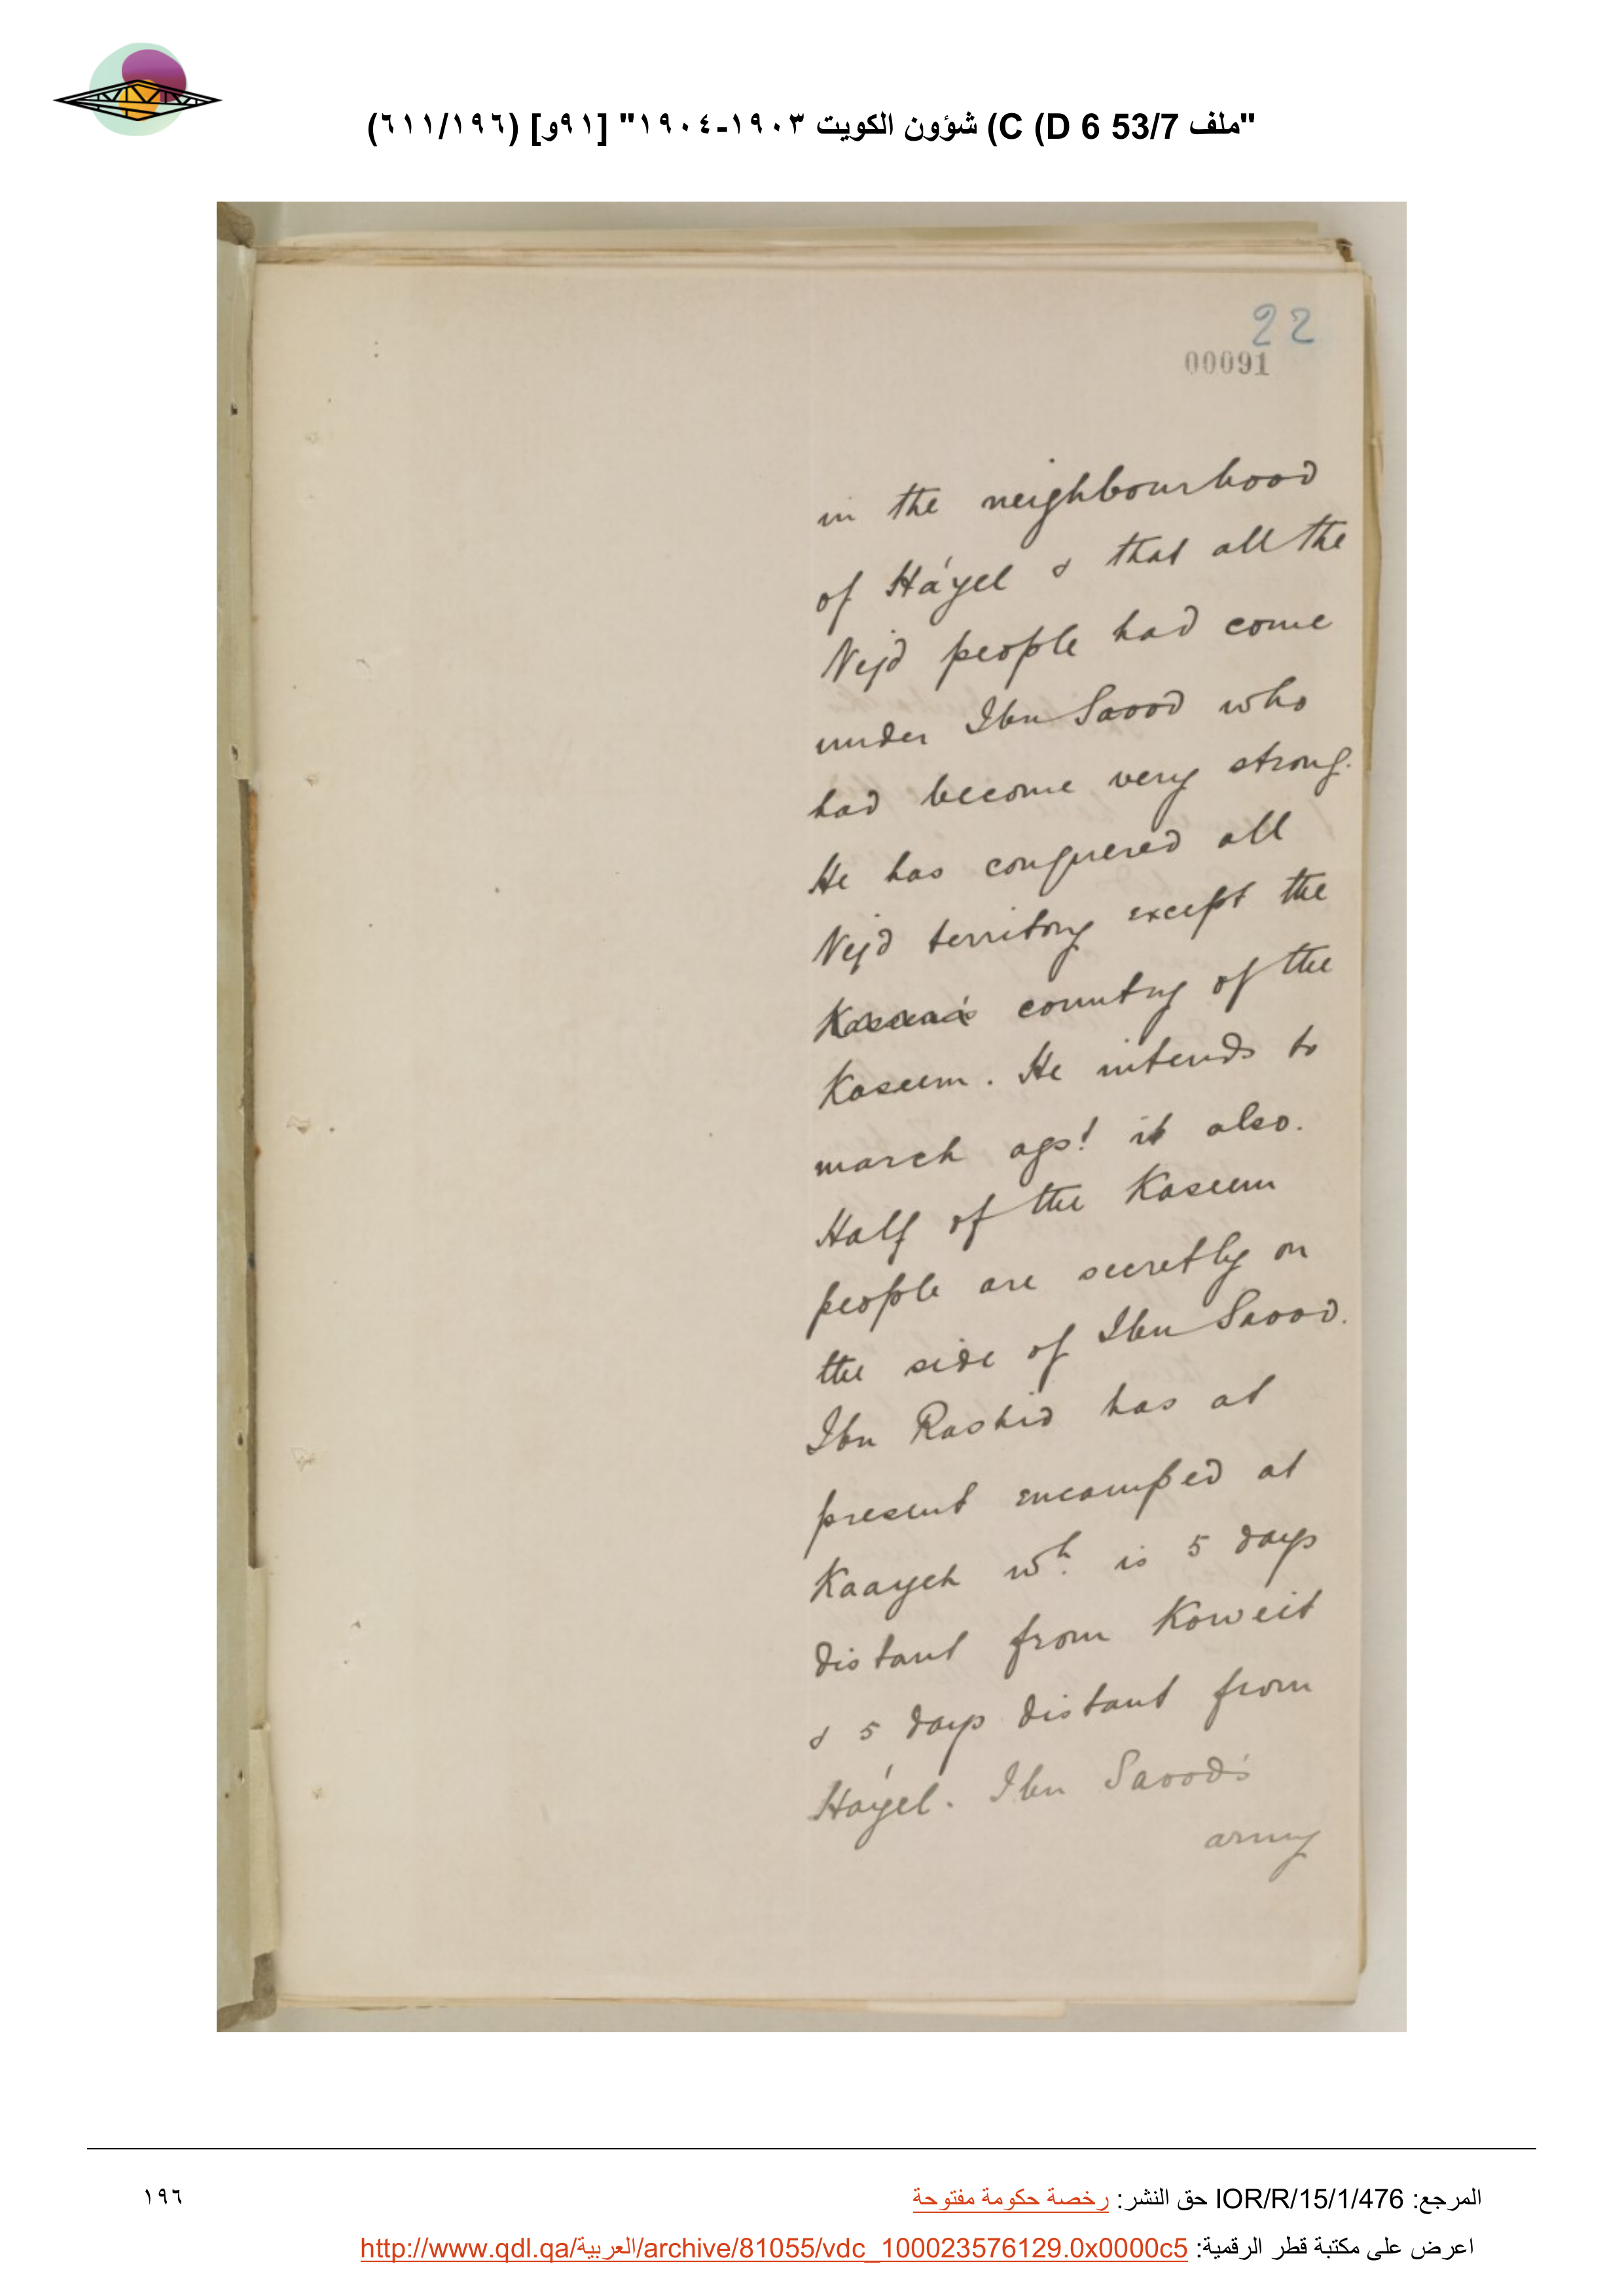 "ملف 53/7 D 6) C) شؤون الكويت ١٩٠٣-١٩٠٤" [٩١و] (٦١١/١٩٦)
22
00091
in the neighbourhood
of Háyel & that all the
Nejd people had come
under Ibn Saood who
had become very strong.
He has conquered all
Nejd territory except the
country of the
Kaseem. He intends to
march agst it also.
Half of the Kaseem
people are secretly on
the side of Ibn Saood.
Ibn Rashid has at
present encamped at
Kaayeh wh. is 5 days
distant from Koweit
& 5 days distant from
Háyel. Ibn Saood's
army
المرجع: IOR/R/15/1/476 حق النشر: رخصة حكومة مفتوحة
١٩٦
اعرض على مكتبة قطر الرقمية: http://www.qdl.qa/العربية/archive/81055/vdc_100023576129.0x0000c5